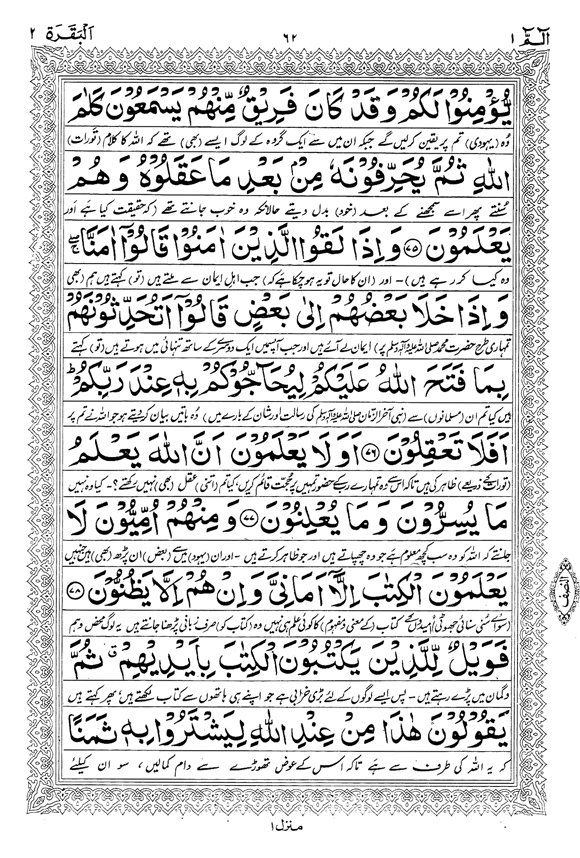 الٓمّٓ ۱ ۶۲ اَلْبَقَرَة ۲
یُّؤْمِنُوْا لَكُمْ وَ قَدْ كَانَ فَرِیْقٌ مِّنْهُمْ یَسْمَعُوْنَ كَلٰمَ
وہ (یہودی) تم پر یقین کرلیں گے جبکہ ان میں سے ایک گروہ کے لوگ ایسے (بھی) تھے کہ اللہ کا کلام (تورات)
اللّٰهِ ثُمَّ یُحَرِّفُوْنَهٗ مِنْۢ بَعْدِ مَا عَقَلُوْهُ وَ هُمْ
سنتے پھر اسے سمجھنے کے بعد (خود) بدل دیتے حالانکہ وہ خوب جانتے تھے (کہ حقیقت کیا ہے اور
یَعْلَمُوْنَ ﴿۷۵﴾ وَ اِذَا لَقُوا الَّذِیْنَ اٰمَنُوْا قَالُوْۤا اٰمَنَّا
وہ کیا کر رہے ہیں)۔ اور (ان کا حال تو یہ ہوچکا ہے کہ) جب اہلِ ایمان سے ملتے ہیں (تو) کہتے ہیں ہم (بھی
وَ اِذَا خَلَا بَعْضُهُمْ اِلٰى بَعْضٍ قَالُوْۤا اَتُحَدِّثُوْنَهُمْ
تمہاری طرح حضرت محمد ﷺ پر) ایمان لے آئے ہیں اور جب آپس میں ایک دوسرے کے ساتھ تنہائی میں ہوتے ہیں (تو) کہتے
بِمَا فَتَحَ اللّٰهُ عَلَیْكُمْ لِیُحَآجُّوْكُمْ بِهٖ عِنْدَ رَبِّكُمْ
ہیں کیا تم ان (مسلمانوں) سے (نبی آخر الزمان ﷺ کی رسالت اور شان کے بارے میں) وہ باتیں بیان کردیتے ہو جو اللہ نے تم پر
اَفَلَا تَعْقِلُوْنَ ﴿۷۶﴾ اَوَ لَا یَعْلَمُوْنَ اَنَّ اللّٰهَ یَعْلَمُ
(تورات کے ذریعے) ظاہر کی ہیں تاکہ اس سے وہ تمہارے رب کے حضور تمہیں پر حجت قائم کریں، کیا تم (اتنی) عقل (بھی) نہیں رکھتے؟۔ کیا وہ نہیں
مَا یُسِرُّوْنَ وَ مَا یُعْلِنُوْنَ ﴿۷۷﴾ وَ مِنْهُمْ اُمِّیُّوْنَ لَا
جانتے کہ اللہ کو وہ سب کچھ معلوم ہے جو وہ چھپاتے ہیں اور جو ظاہر کرتے ہیں۔ اور ان (یہود) میں سے (بعض) ان پڑھ (بھی) ہیں جنہیں
یَعْلَمُوْنَ الْكِتٰبَ اِلَّاۤ اَمَانِیَّ وَ اِنْ هُمْ اِلَّا یَظُنُّوْنَ ﴿۷۸﴾
(سوائے سنی سنائی جھوٹی امیدوں کے) کتاب (کے معنی و مفہوم) کا کوئی علم ہی نہیں وہ (کتاب کو) صرف زبانی پڑھنا جانتے ہیں یہ لوگ محض وہم
فَوَیْلٌ لِّلَّذِیْنَ یَكْتُبُوْنَ الْكِتٰبَ بِاَیْدِیْهِمْ ۗ ثُمَّ
و گمان میں پڑے رہتے ہیں۔ پس ایسے لوگوں کے لئے بڑی خرابی ہے جو اپنے ہی ہاتھوں سے کتاب لکھتے ہیں، پھر کہتے ہیں
یَقُوْلُوْنَ هٰذَا مِنْ عِنْدِ اللّٰهِ لِیَشْتَرُوْا بِهٖ ثَمَنًا
کہ یہ اللہ کی طرف سے ہے تاکہ اس کے عوض تھوڑے سے دام کمالیں، سو ان کیلئے
النصف
منزل ۱